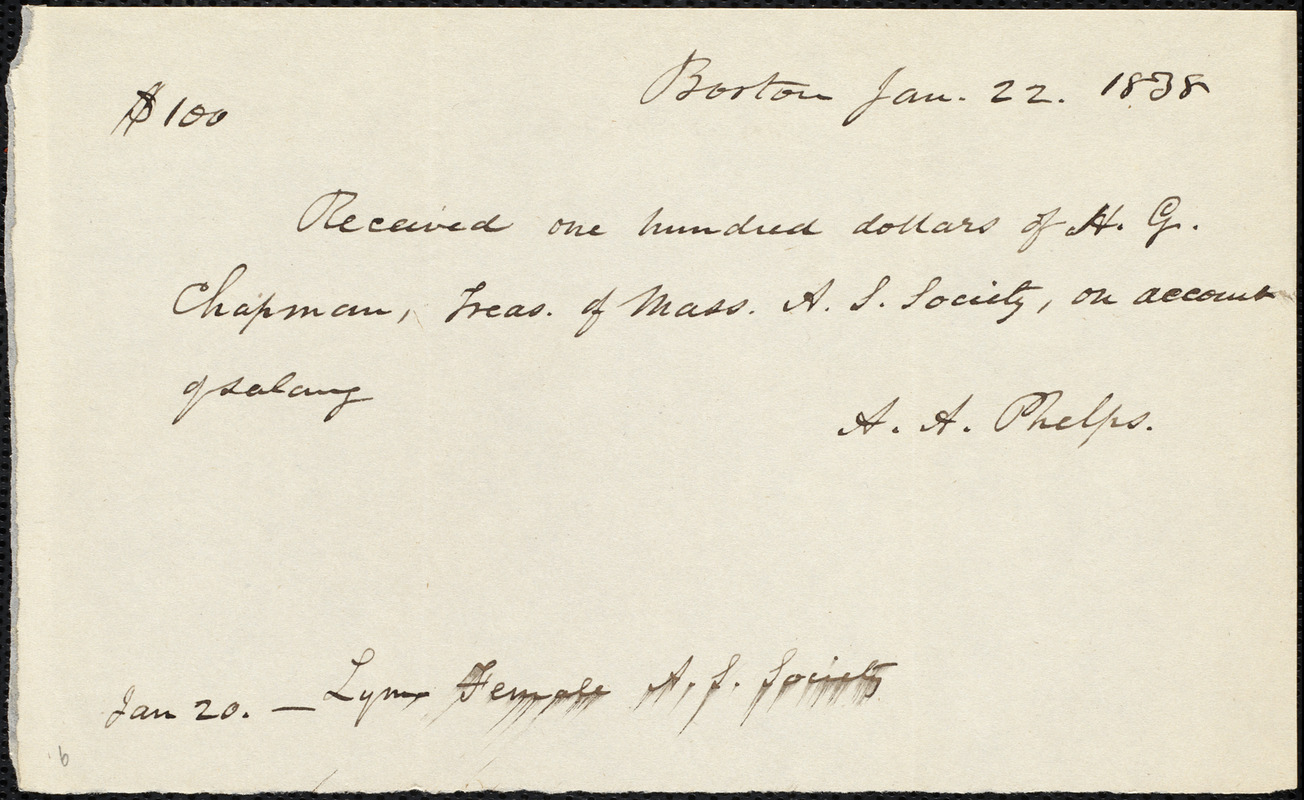 Boston Jan. 22. 1838
$100
Received one hundred dollars of H. G.
Chapman, Treas. of Mass. A. S. Society, on account
of salary
A. A. Phelps.
Jan 20. — Lynn Female A. S. Society
6